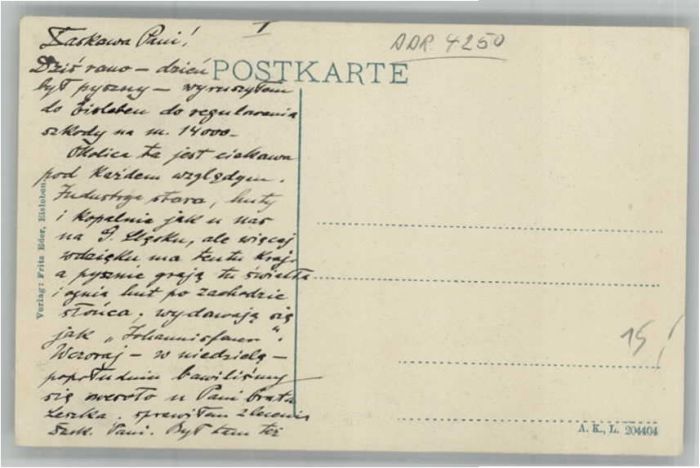 I
ADR 4250
POSTKARTE
Łaskawa Pani!
Dziś rano – dzień
był pyszny – wyruszyłem
do Eisleben do regulowania
szkody na m. 14000–
Okolica ta jest ciekawa
pod każdem względym.
Industrya stara, huty
i kopalnie jak u nas
na G. Śląsku, ale więcej
wdzięku ma ten tu kraj,
a pysznie grają tu światła
i ognie hut po zachodzie
słońca; wydawają się
jak „Johannisfeuer".
Wczoraj – w niedzielę –
popołudniu bawiliśmy
się wesoło u Pani brata
Leszka. sprawiłem zlecenie
Szan. Pani. Był tam też
Verlag: Fritz Eder, Eisleben.
15/
A. K., L. 204404